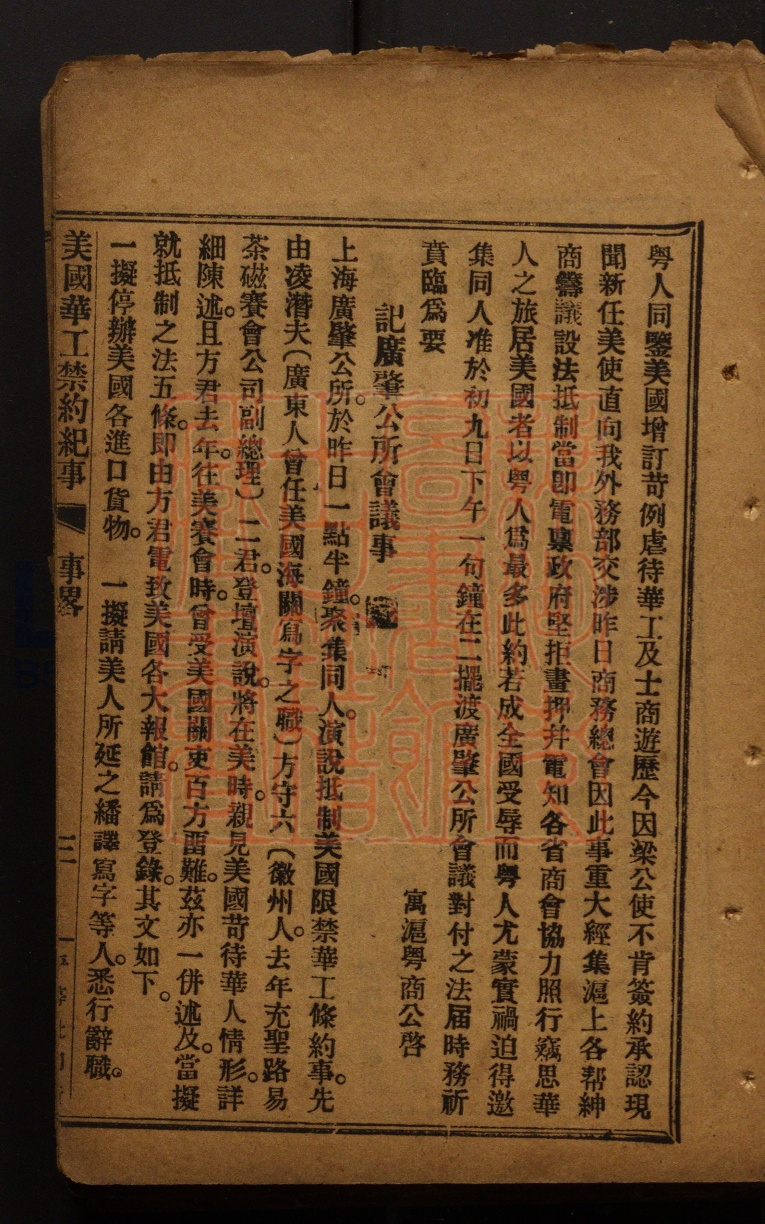 粤人同鑒美國增訂苛例虐待華工及士商遊歷今因梁公使不肯簽約承認現
聞新任美使直向我外務部交涉昨日商務總會因此事重大經集滬上各帮紳
商籌議設法抵制當卽電稟政府堅拒畫押幷電知各省商會協力照行竊思華
人之旅居美國者以粤人爲最多此約若成全國受辱而粤人尤蒙實禍迫得邀
集同人准於初九日下午一句鐘在二擺渡廣肇公所會議對付之法届時務祈
賁臨爲要
寓滬粤商公啓
記廣肇公所會議事
上海廣肇公所。於昨日一點半鐘。聚集同人。演說抵制美國限禁華工條約事。先
由凌潛夫（廣東人曾任美國海關寫字之職）方守六（徽州人。去年充聖路易
茶磁賽會公司副總理）二君。登壇演說。將在美時。親見美國苛待華人情形。詳
細陳述。且方君去年。往美賽會時。曾受美國關吏百方畱難。茲亦一併述及。當擬
就抵制之法五條。卽由方君電致美國各大報館。請爲登錄。其文如下。
一擬停辦美國各進口貨物。　一擬請美人所延之繙譯寫字等人。悉行辭職。
美國華工禁約紀事　事畧　三